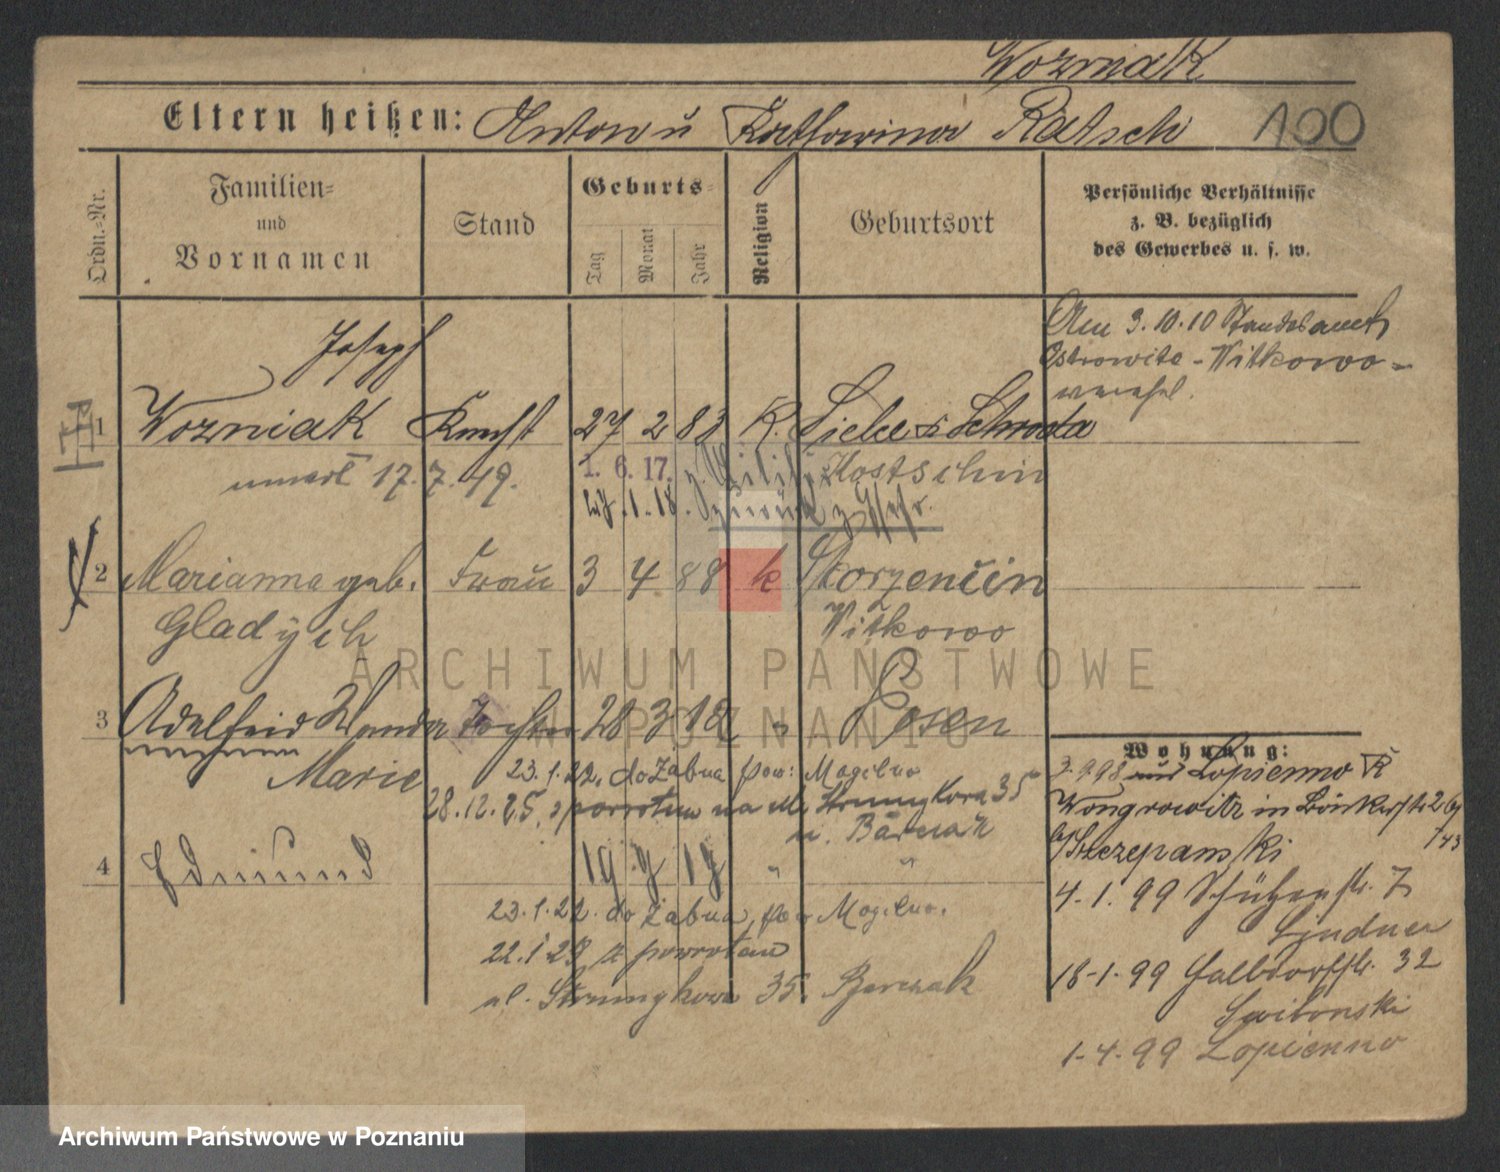 Wozniak
Eltern heißen: Anton u Katharina Ratsch 100
Ordn.-Nr.
Familien= und Vornamen
Stand
Geburts=
Tag
Monat
Jahr
Religion
Geburtsort
Persönliche Verhältnisse
z. B. bezüglich
des Gewerbes u. s. w.
Am 3.10.10 Standesamt
Ostrowite - Witkowo -
Joseph
1 Wozniak Knecht 27 2 83 K. Schroda
17.7.19. 1. 6. 17. Kostschin
1.18.
2 Marianna geb. Frau 3 4 88 k Skorzencin
Gladych Witkowo
ARCHIWUM PAŃSTWOWE
W POZNANIU
3 Adelheid Wanda Tochter 28 3 12 " Posen
Marie
23.1.22. do Żabna pow: Mogilno
28.12.25. z powrotem na ul. Strumykowa 35
u. Barczak
4 Edmund 19 9 19 " "
23.1.22. do Żabna, pow Mogilno.
22.1 23 z powrotem
ul. Strumykowa 35. Barczak
Wohnung:
3.9.98 aus Lopienno K
Wongrowitz in
b/Szczepanski
4.1.99 Schützenstr. 7
Lindner
18-1-99 Halbdorfstr. 32
1-4-99 Lopienno
Archiwum Państwowe w Poznaniu